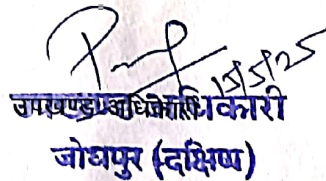 15/5/25
उपखण्ड अधिकारी
जोधपुर (दक्षिण)